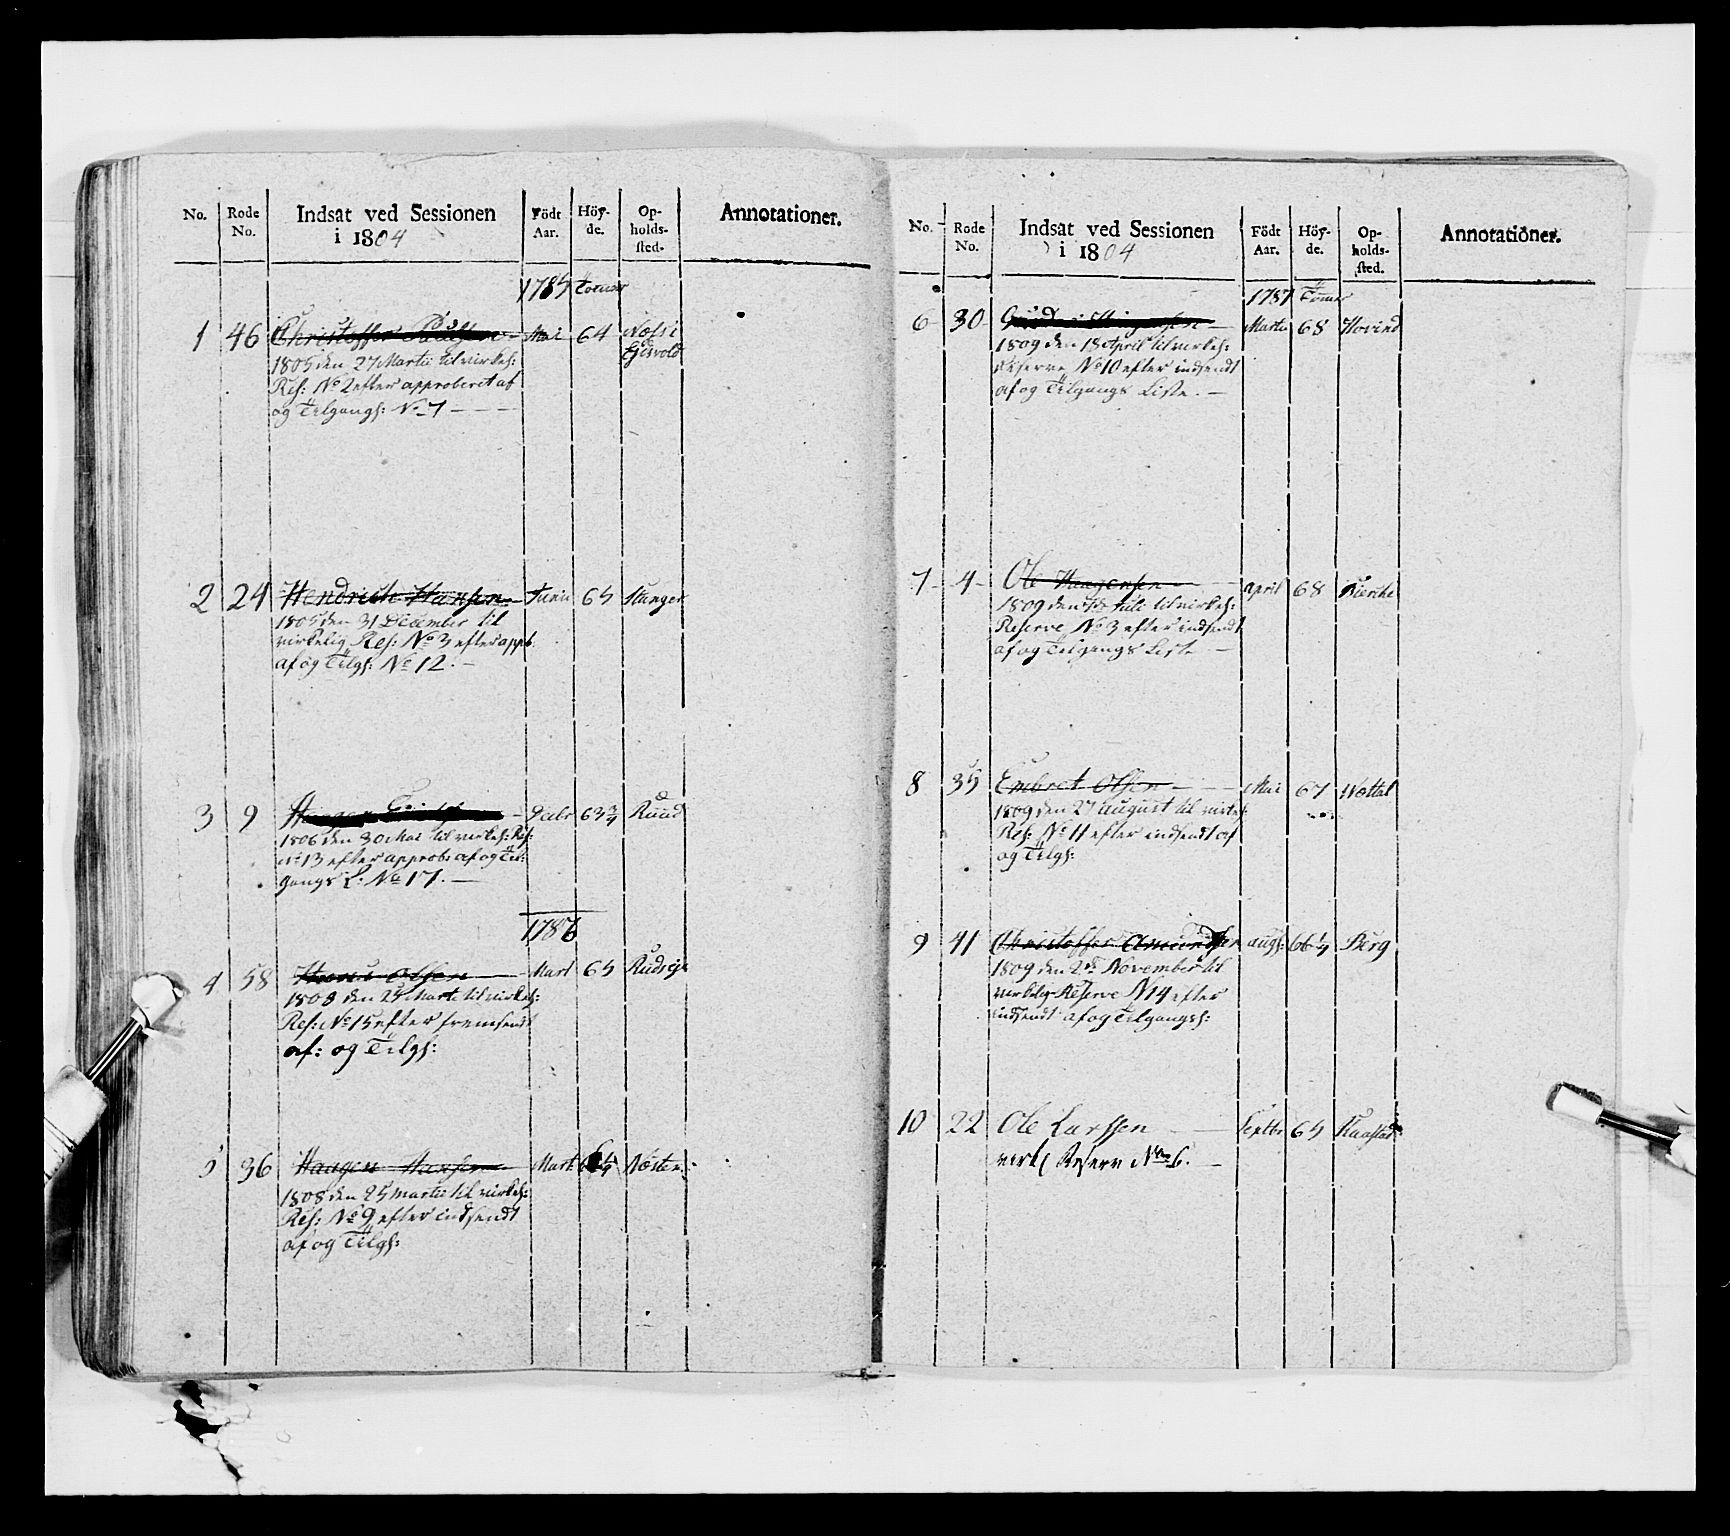 No. Rode No. Indsat ved Sessionen i 1804 Födt Aar. Höy-de. Op-holds-sted. Annotationer.
1785 Tommer
1 46 Christoffer Paulsen Mai 64 Næss i Eisvold
1805 den 27 Martii til virkel:
Res: No 2 efter approberet af
og Tilgangs: No 7
2 24 Hendrich Hansen Junii 65 Stanger
1805 den 31 December til
virkelig Res: No 3 efter approb.
af og Tilgs: No 12.
3 9 Haagen 9velr 63 3/4 Ruud
1806 den 30 Mai til virkel: Res:
No 13 efter approb: af og Til-
gangs L: No 17.
1786
4 58 Hans Olsen Mart 65
1808 den 25 Marti til virkel:
Res: No 15 efter fremsendt
af: og Tilgs:
5 36 Haagen Hansen Mart Næsten
1808 den 25 Martii til virkel:
Res: No 9 efter indsendt
af og Tilgs:
No. Rode No. Indsat ved Sessionen i 1804 Födt Aar. Höy-de. Op-holds-sted. Annotationer.
1787 Tommer
6 30 Martii 68 Hovind
1809 den 18 April til virkel:
Reserve No 10 efter indsendt
af og Tilgangs Liste.
7 4 Ole Haagensen April 68 Bierche
1809 den Juli til virkel:
Reserve No 3 efter indsendt
af og Tilgangs Liste
8 35 Embret Olsen Mai 67 Wættal
1809 den 27 August til virkel:
Res: No 11 efter indsendt af
og Tilgs:
9 41 Christoffer Amundsen Augs: 66 1/4 Berg
1809 den 2de November til
virkelig Reserve N 14 efter
indsendt af og Tilgangs:
10 22 Ole Larssen Septbr 65 Kaastad
virkl Reserv No 6.